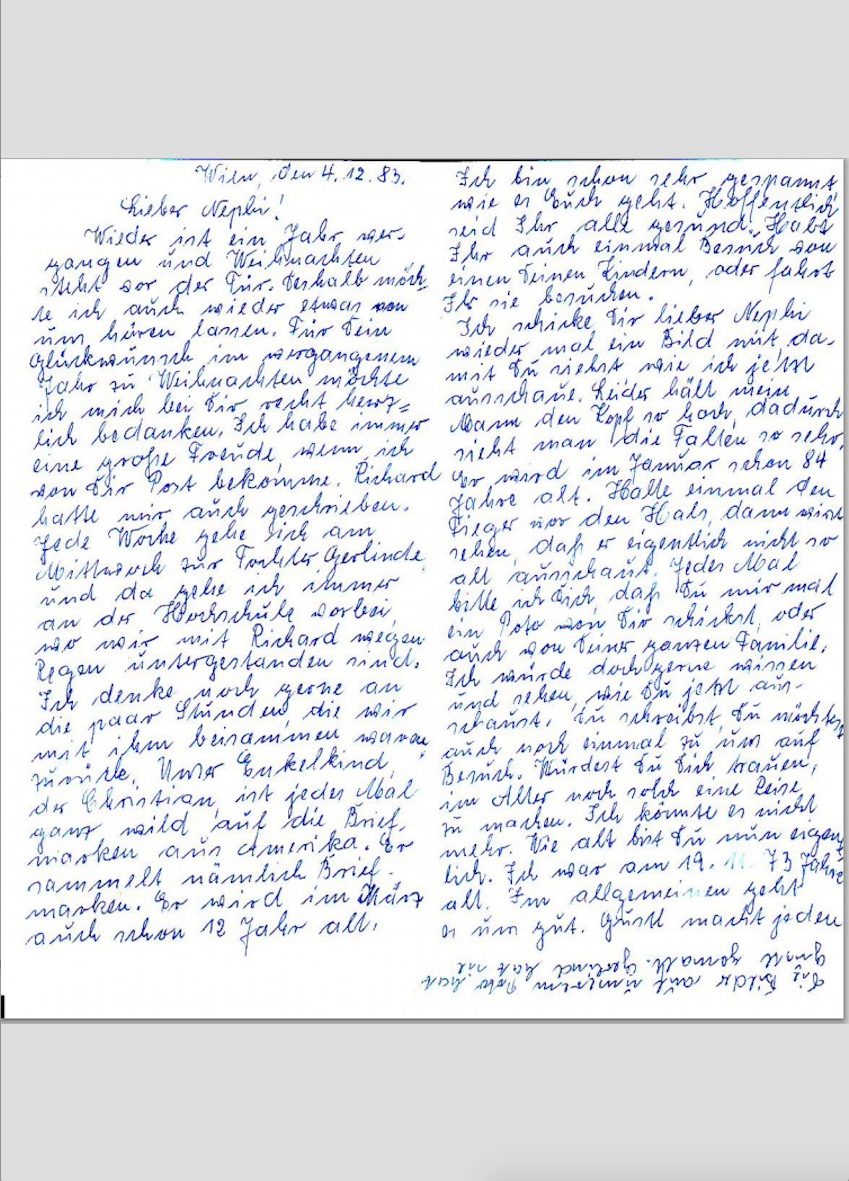 Wien, den 4.12.83.
Lieber Nephi!
Wieder ist ein Jahr ver-
gangen und Weihnachten
steht vor der Tür. Deshalb möch-
te ich auch wieder etwas von
uns hören lassen. Für Dein
Glückwunsch im vergangenem
Jahr zu Weihnachten möchte
ich mich bei Dir recht herz=
lich bedanken. Ich habe immer
eine große Freude, wenn ich
von Dir Post bekomme. Richard
hatte mir auch geschrieben.
Jede Woche gehe ich am
Mittwoch zur Tochter Gerlinde
und da gehe ich immer
an der Hochschule vorbei,
wo wir mit Richard wegen
Regen untergestanden sind.
Ich denke noch gerne an
die paar Stunden, die wir
mit ihm beisammen waren,
zurück. Unser Enkelkind,
der Christian, ist jedes Mal
ganz wild auf die Brief-
marken aus Amerika. Er
sammelt nämlich Brief-
marken. Er wird im März
auch schon 12 Jahr alt.
Ich bin schon sehr gespannt
wie es Euch geht. Hoffentlich
seid Ihr alle gesund. Habt
Ihr auch einmal Besuch von
einen Deinen Kindern, oder fahrt
Ihr sie besuchen.
Ich schicke Dir lieber Nephi
wieder mal ein Bild mit, da-
mit Du siehst wie ich jetzt
ausschaue. Leider hält mein
Mann den Kopf so hoch, dadurch
sieht man die Falten so sehr.
Er wird im Januar schon 84
Jahre alt. Halte einmal den
Fieger vor den Hals, dann wirst
sehen, daß er eigentlich nicht so
alt ausschaut. Jedes Mal
bitte ich Dich, daß Du mir mal
ein Foto von Dir schickst, oder
auch von Deiner ganzen Familie.
Ich würde doch gerne wissen
und sehen, wie Du jetzt aus-
schaust. Du schreibst, Du möchtest
auch noch einmal zu uns auf
Besuch. Würdest Du Dich trauen,
im Alter noch solch eine Reise
zu machen. Ich könnte es nicht
mehr. Wie alt bist Du nun eigent
lich. Ich war am 19. 11. 73 Jahre
alt. Im allgemeinen geht
es uns gut. Gustl macht jeden
Die Bilder auf unserem Foto hat
Gustl gemalt. Gerlinde hat sie